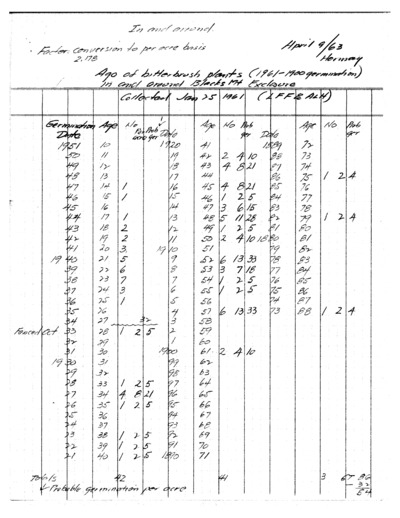 In and around
Factor conversion to per acre basis
2.178
April 9/63
Hormay
Age of bitterbrush plants (1961-1900 germination)
in and around Blacks Mt Exclosure
Collected Jan 25 1961 (LFF & ALH)
Germination Age No Prob Date Age No Prob Date Age No Prob
Date ger ger ger
1951 10 1920 41 1889 72
50 11 19 42 2 4 10 88 73
49 12 18 43 4 8 21 87 74
48 13 17 44 86 75 1 2 4
47 14 1 16 45 4 8 21 85 76
46 15 1 15 46 1 2 5 84 77
45 16 14 47 3 6 15 83 78
44 17 1 13 48 5 11 28 82 79 1 2 4
43 18 2 12 49 1 2 5 81 80
42 19 2 11 50 2 4 10 1880 81
41 20 3 1910 51 79 82
1940 21 5 9 52 6 13 33 78 83
39 22 6 8 53 3 7 18 77 84
38 23 7 7 54 1 2 5 76 85
37 24 3 6 55 1 2 5 75 86
36 25 1 5 56 74 87
35 26 4 57 6 13 33 73 88 1 2 4
34 27 32 3 58
Fenced Oct 33 28 1 2 5 2 59
32 29 1 60
31 30 1900 61 2 4 10
1930 31 99 62
29 32 98 63
28 33 1 2 5 97 64
27 34 4 8 21 96 65
26 35 1 2 5 95 66
25 36 94 67
24 37 93 68
23 38 1 2 5 92 69
22 39 1 2 5 91 70
21 40 1 2 5 1890 71
Totals 42 41 3 86
32
54
↓ Probable germination per acre